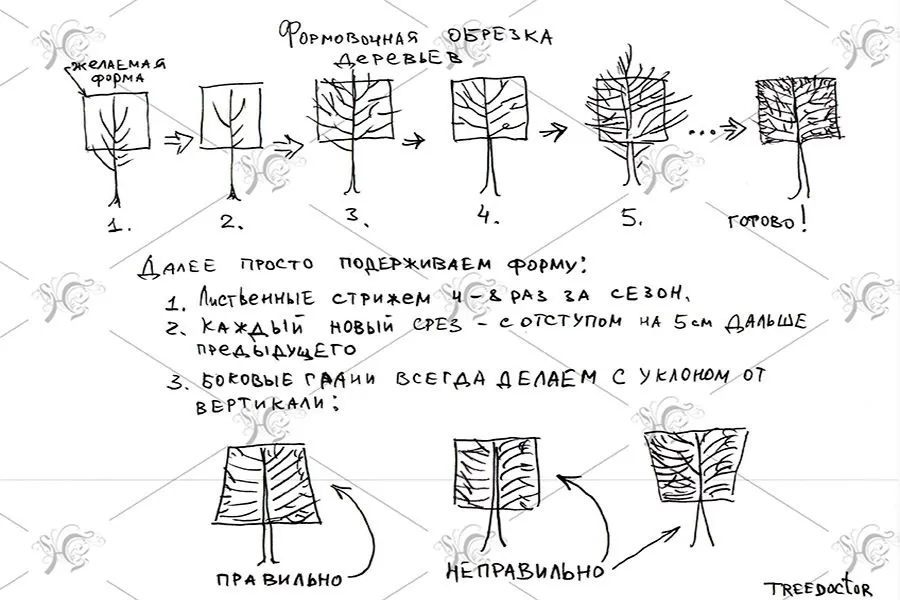 Формовочная обрезка
деревьев
желаемая
форма
1.
2.
3.
4.
5.
готово!
Далее просто подерживаем форму:
1. Лиственные стрижем 4-8 раз за сезон.
2. каждый новый срез - с отступом на 5см дальше
предыдущего
3. боковые грани всегда делаем с уклоном от
вертикали:
правильно
неправильно
TREEDOCTOR